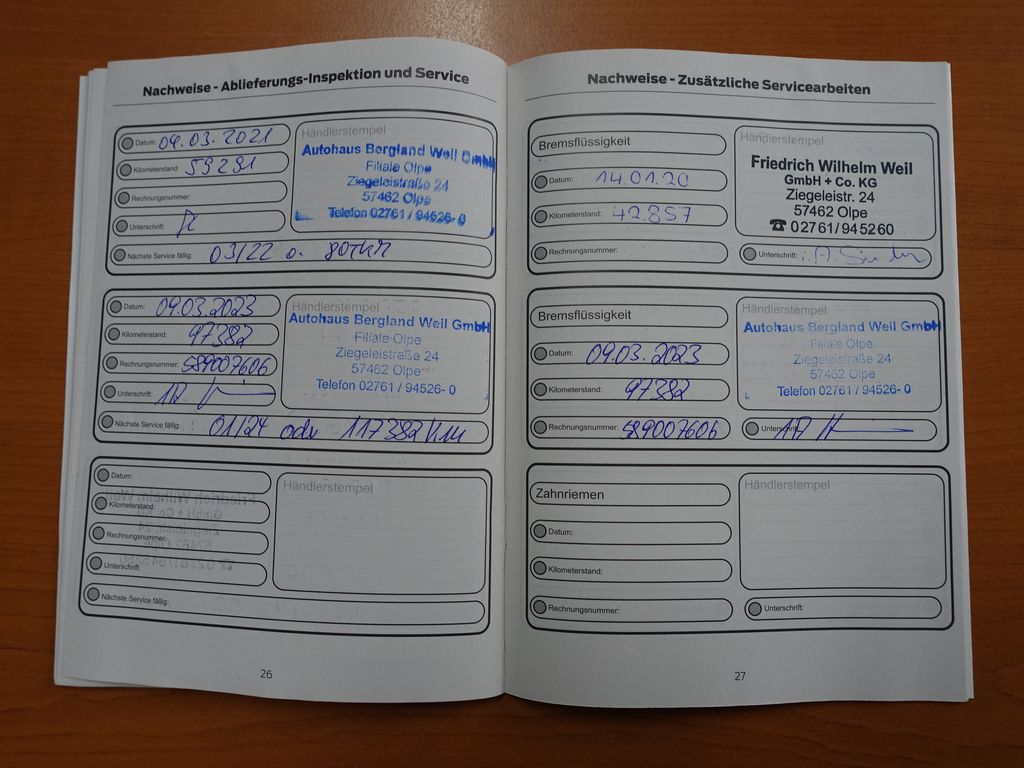 Nachweise - Ablieferungs-Inspektion und Service
Datum: 09.03.2021
Kilometerstand: 59291
Rechnungsnummer:
Unterschrift:
Nächste Service fällig: 03/22 o.
Händlerstempel
Autohaus Bergland Weil GmbH
Filiale Olpe
Ziegeleistraße 24
57462 Olpe
Telefon 02761 / 94526- 0
Datum: 09.03.2023
Kilometerstand: 97382
Rechnungsnummer: 589007606
Unterschrift:
Nächste Service fällig: 01/24 oder 117382 km
Händlerstempel
Autohaus Bergland Weil GmbH
Filiale Olpe
Ziegeleistraße 24
57462 Olpe
Telefon 02761 / 94526- 0
Datum:
Kilometerstand:
Rechnungsnummer:
Unterschrift:
Nächste Service fällig:
Händlerstempel
26
Nachweise - Zusätzliche Servicearbeiten
Bremsflüssigkeit
Datum: 14.01.20
Kilometerstand: 42.857
Rechnungsnummer:
Händlerstempel
Friedrich Wilhelm Weil
GmbH + Co. KG
Ziegeleistr. 24
57462 Olpe
☎ 02761/945260
Unterschrift:
Bremsflüssigkeit
Datum: 09.03.2023
Kilometerstand: 97382
Rechnungsnummer: 589007606
Händlerstempel
Autohaus Bergland Weil GmbH
Filiale Olpe
Ziegeleistraße 24
57462 Olpe
Telefon 02761 / 94526- 0
Unterschrift:
Zahnriemen
Datum:
Kilometerstand:
Rechnungsnummer:
Händlerstempel
Unterschrift:
27